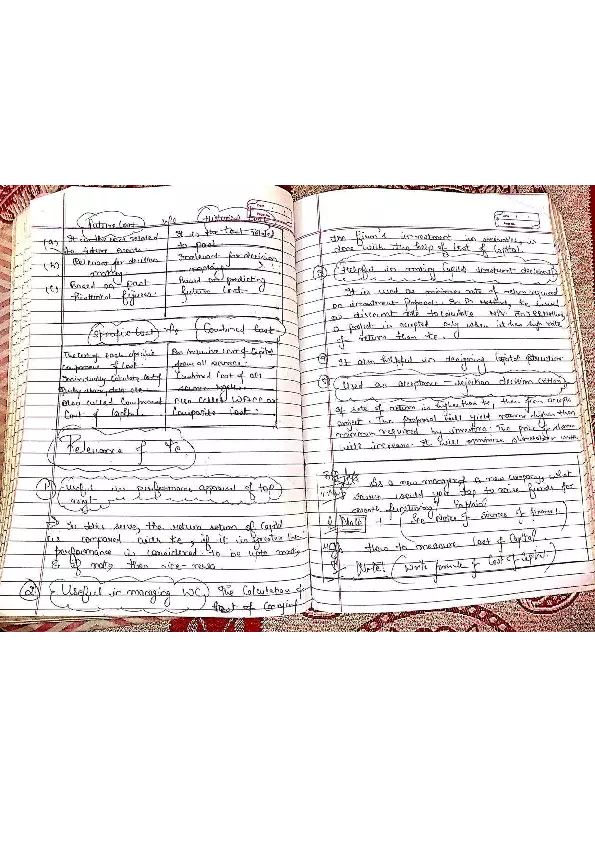 Future Cost v/s Historical Cost
(a) It is the cost related to future events | It is the cost related to past
(b) Relevant for decision making | Irrelevant for decision making
(c) Based on past historical figures | Based on predicting future cost.
Specific Cost v/s Combined Cost
The cost of each specific component of cost | An inclusive cost of capital from all sources
Individually calculate cost of | Combined cost of all
Also called Component Cost of Capital | Also called WACC or Composite Cost.
Relevance of Kc
1) Useful in performance appraisal of top mgt
In this sense, the return of Capital
is compared with Kc, if it is
performance is considered to be upto mark
& if not, then vice-versa
2) Useful in managing WC. The Calculation of
Cost of Carrying
the firm's investment in is
done with the help of Cost of Capital.
3) Helpful in making Capital investment decisions
It is used as minimum rate of return required
on investment proposal. In Methods, Kc used
as discount rate to calculate NPV. In IRR Method,
a project is accepted only when it has high rate
of return than Kc.
4) It also helpful in designing Capital structure
5) Used as acceptance - rejection decision criteria
If rate of return is higher than Kc, then firm accepts
project. The proposal will yield return higher than
minimum required by investors. The price of share
will increase. It will maximise shareholder wealth
As a new manager of a new company what
source would you tap to raise funds for
smooth functioning? Explain
Note: See notes of Sources of finance.
How to measure Cost of Capital
Note: Write formula of Cost of Capital.